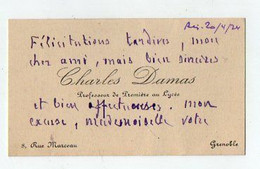 20/4/24
Félicitations tardives, mon
cher ami, mais bien sincères
Charles Damas
Professeur de Première au Lycée
et bien affectueuses. mon
excuse, mademoiselle votre
8, Rue Marceau
Grenoble